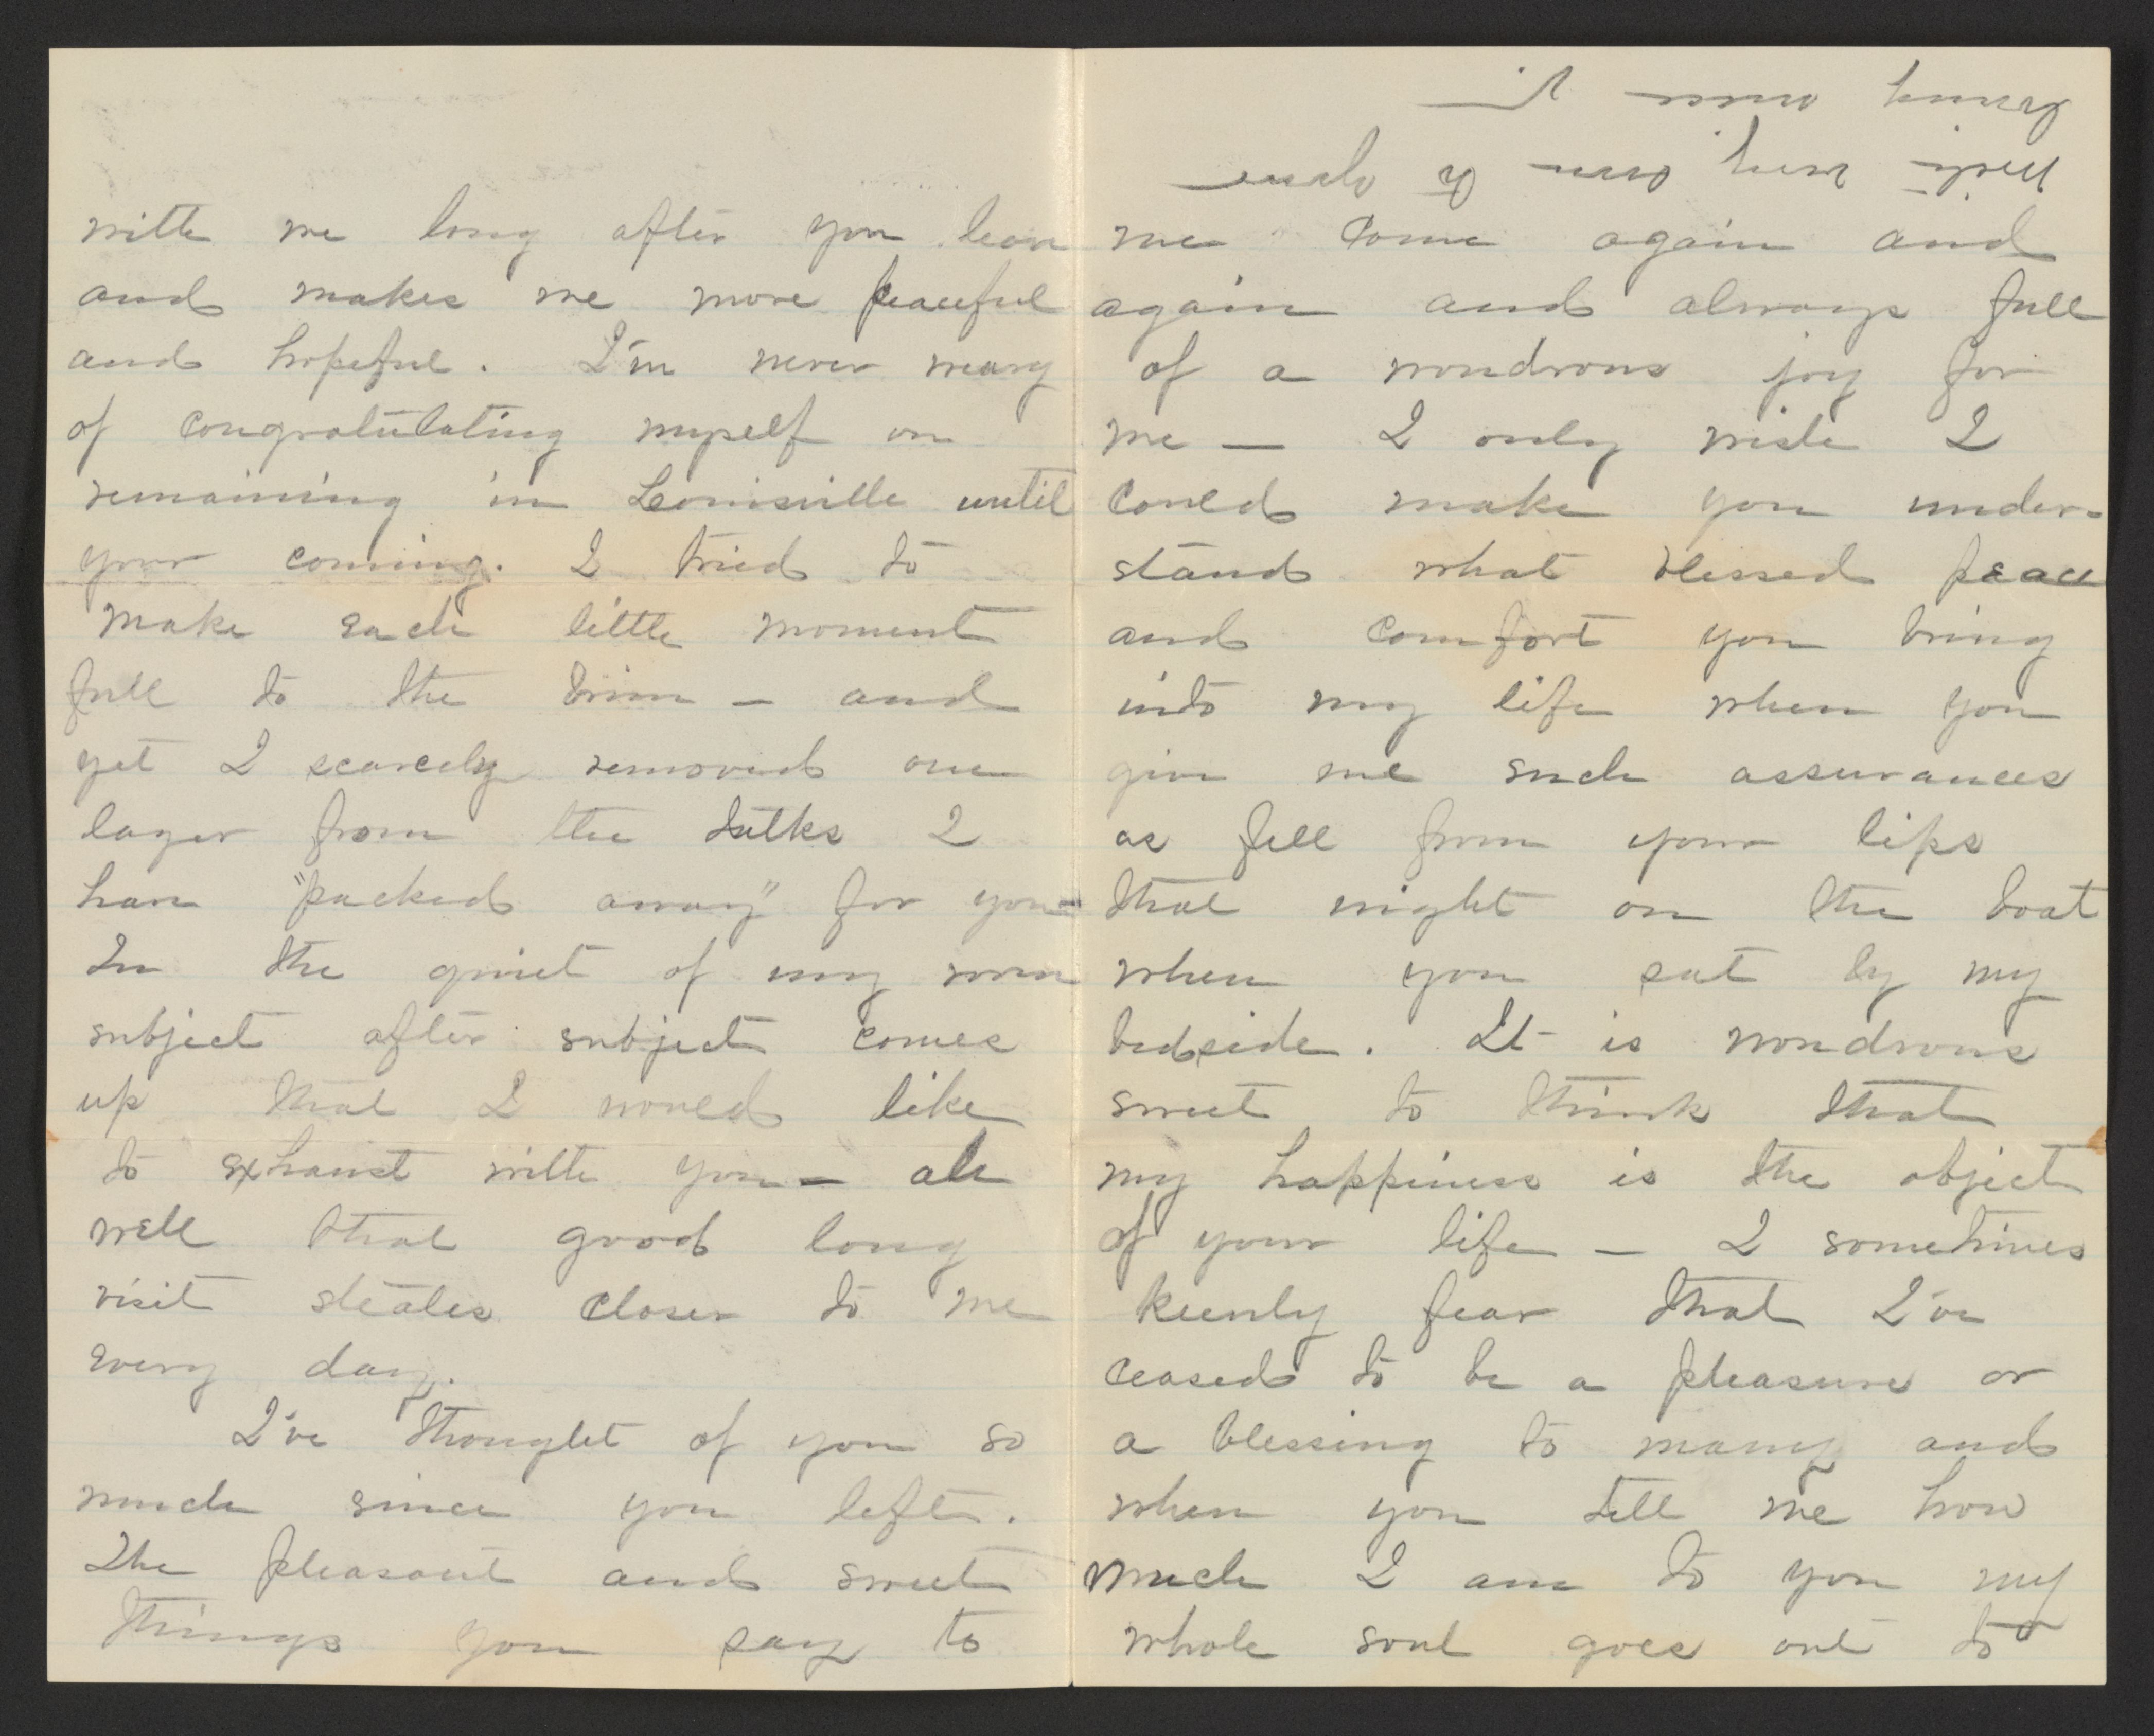 with me long after you leave
and makes me more peaceful
and hopeful. I'm never weary
of congratulating myself on
remaining in Louisville until
your coming. I tried to
make each little moment
full to the brim — and
yet I scarcely removed one
layer from the talks I
have "packed away" for you —
In the quiet of my room
subject after subject comes
up that I would like
to exhaust with you — ah
well that good long
visit steales closer to me
every day.
I've thought of you so
much since you left.
The pleasant and sweet
things you say to
me come again and
again and always full
of a wondrous joy for
me — I only wish I
could make you under-
stand what blessed peace
and comfort you bring
into my life when you
give me such assurances
as fell from your lips
that night on the boat
when you sat by my
bedside. It is wondrous
sweet to think that
my happiness is the object
of your life — I sometimes
keenly fear that I've
ceased to be a pleasure or
a blessing to many and
when you tell me how
much I am to you my
whole soul goes out to